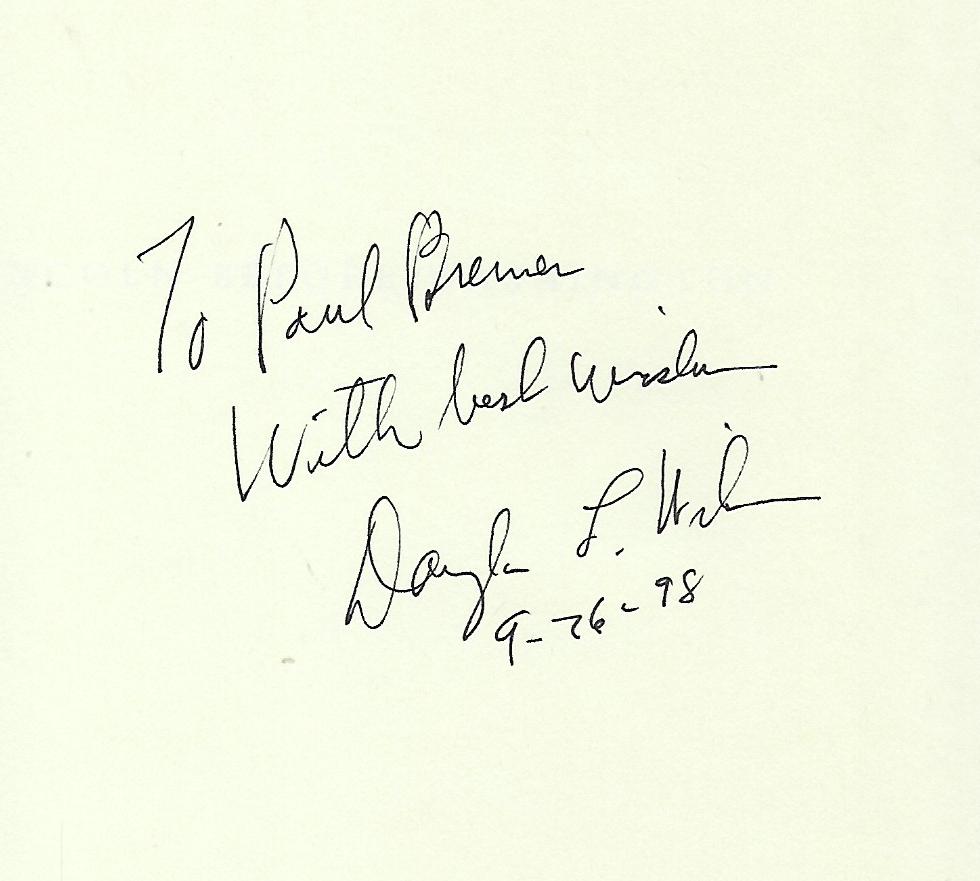 To Paul Bremer
With best wishes
Douglas L. Wilson
9-26-98